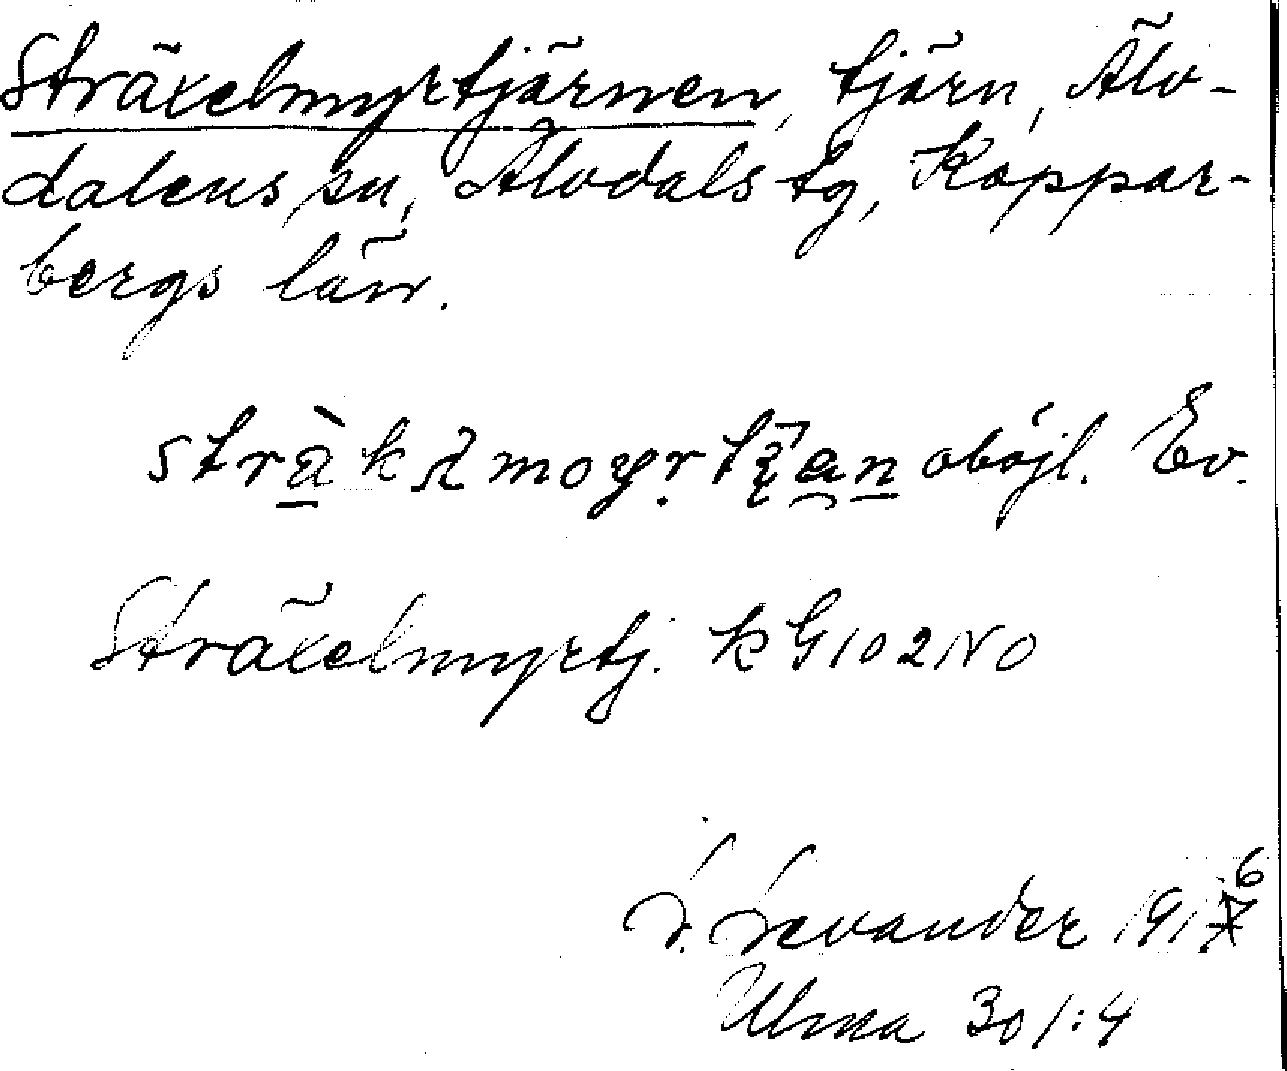 Sträxelmyrtjärnen, tjärn, Älv-
dalens sn, Älvdals tg, Koppar-
bergs län.
oböjl. Ev.
Sträxelmyrtj. KG102NO
L. Levander 1916
Ulma 301:4